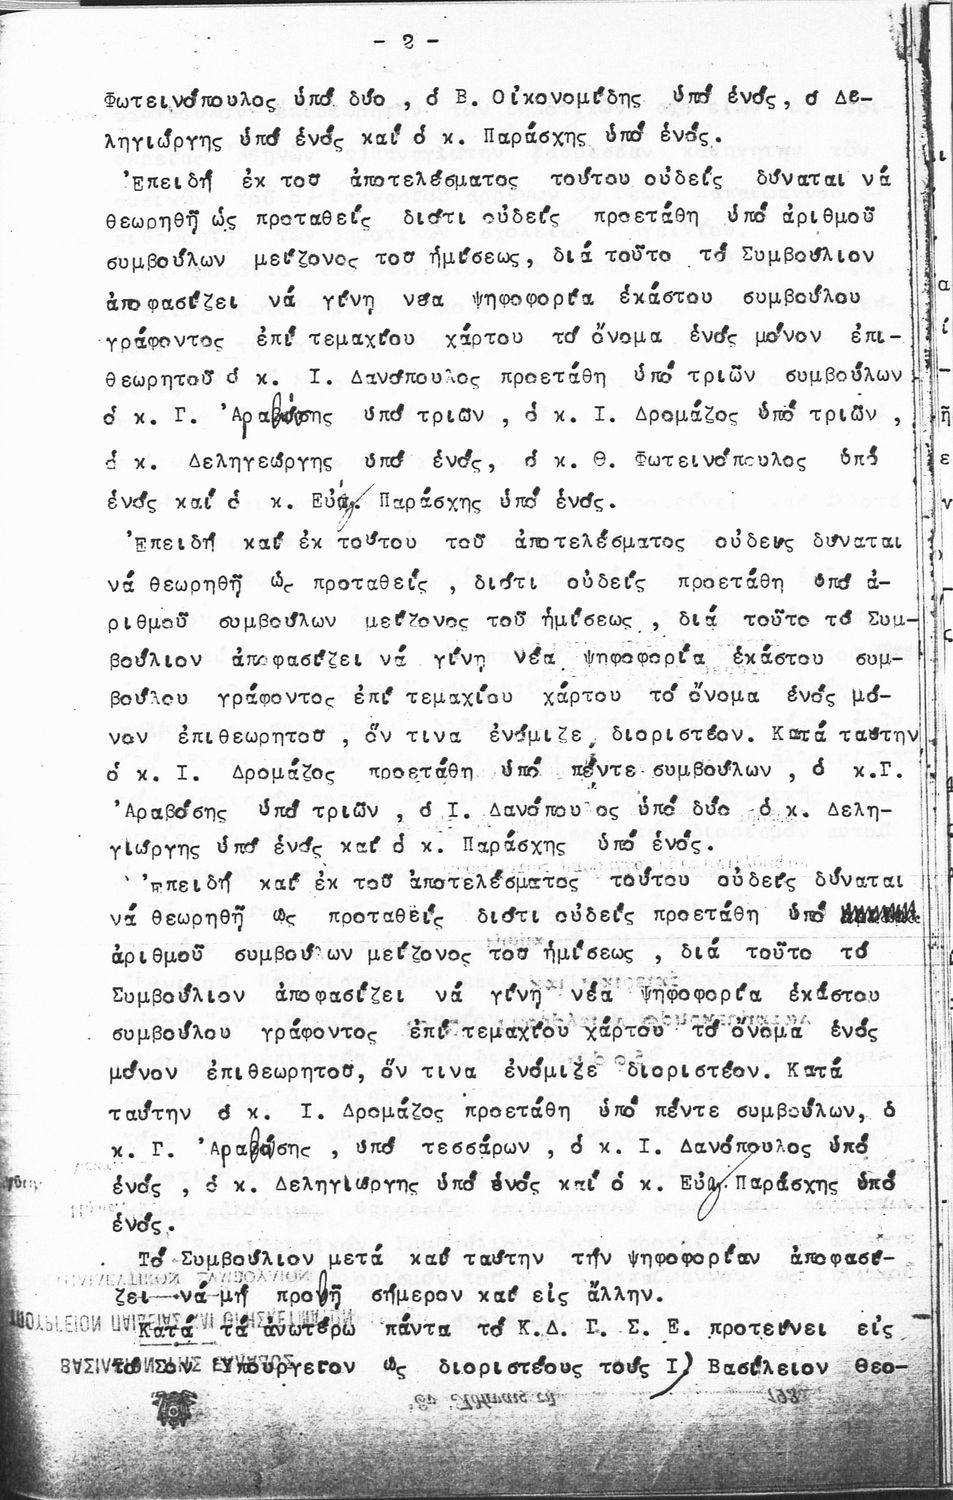 - 2 -
Φωτεινόπουλος ὑπό δύο , ὁ Β. Οἰκονομίδης ὑπό ἑνός, ὁ Δε-
ληγιώργης ὑπό ἑνός καί ὁ κ. Παράσχης ὑπό ἑνός.
Ἐπειδή ἐκ τοῦ ἀποτελέσματος τούτου οὐδείς δύναται νά
θεωρηθῇ ὡς προταθείς διότι οὐδείς προετάθη ὑπό ἀριθμοῦ
συμβούλων μείζονος τοῦ ἡμίσεως, διά τοῦτο τό Συμβούλιον
ἀποφασίζει νά γίνῃ νέα ψηφοφορία ἑκάστου συμβούλου
γράφοντος ἐπί τεμαχίου χάρτου τό ὄνομα ἑνός μόνον ἐπι-
θεωρητοῦ ὁ κ. Ι. Δανόπουλος προετάθη ὑπό τριῶν συμβούλων
ὁ κ. Γ. Ἀραβόσης ὑπό τριῶν , ὁ κ. Ι. Δρομάζος ὑπό τριῶν ,
ὁ κ. Δεληγεώργης ὑπό ἑνός, ὁ κ. Θ. Φωτεινόπουλος ὑπό
ἑνός καί ὁ κ. Εὐά. Παράσχης ὑπό ἑνός.
Ἐπειδή καί ἐκ τούτου τοῦ ἀποτελέσματος οὐδείς δύναται
νά θεωρηθῇ ὡς προταθείς , διότι οὐδείς προετάθη ὑπό ἀ-
ριθμοῦ συμβούλων μείζονος τοῦ ἡμίσεως , διά τοῦτο τό Συμ-
βούλιον ἀποφασίζει νά γίνῃ νέα ψηφοφορία ἑκάστου συμ-
βούλου γράφοντος ἐπί τεμαχίου χάρτου τό ὄνομα ἑνός μό-
νον ἐπιθεωρητοῦ , ὅν τινα ἐνόμιζε διοριστέον. Κατά ταύτην
ὁ κ. Ι. Δρομάζος προετάθη ὑπό πέντε συμβούλων , ὁ κ.Γ.
Ἀραβόσης ὑπό τριῶν , ὁ Ι. Δανόπουλος ὑπό δύο ὁ κ. Δελη-
γιώργης ὑπό ἑνός καί ὁ κ. Παράσχης ὑπό ἑνός.
Ἐπειδή καί ἐκ τοῦ ἀποτελέσματος τούτου οὐδείς δύναται
νά θεωρηθῇ ὡς προταθείς διότι οὐδείς προετάθη ὑπό
ἀριθμοῦ συμβούλων μείζονος τοῦ ἡμίσεως , διά τοῦτο τό
Συμβούλιον ἀποφασίζει νά γίνῃ νέα ψηφοφορία ἑκάστου
συμβούλου γράφοντος ἐπί τεμαχίου χάρτου τό ὄνομα ἑνός
μόνον ἐπιθεωρητοῦ, ὅν τινα ἐνόμιζε διοριστέον. Κατά
ταύτην ὁ κ. Ι. Δρομάζος προετάθη ὑπό πέντε συμβούλων, ὁ
κ. Γ. Ἀραβόσης , ὑπό τεσσάρων , ὁ κ. Ι. Δανόπουλος ὑπό
ἑνός , ὁ κ. Δεληγιώργης ὑπό ἑνός καί ὁ κ. Εὐαγ. Παράσχης ὑπό
ἑνός.
Τό Συμβούλιον μετά καί ταύτην τήν ψηφοφορίαν ἀποφασί-
ζει νά μή προβῇ σήμερον καί εἰς ἄλλην.
Κατά τά ἀνωτέρω πάντα τό Κ.Δ. Γ. Σ. Ε. προτείνει εἰς
τό Σόν Ὑπουργεῖον ὡς διοριστέους τούς Ι) Βασίλειον Θεο-